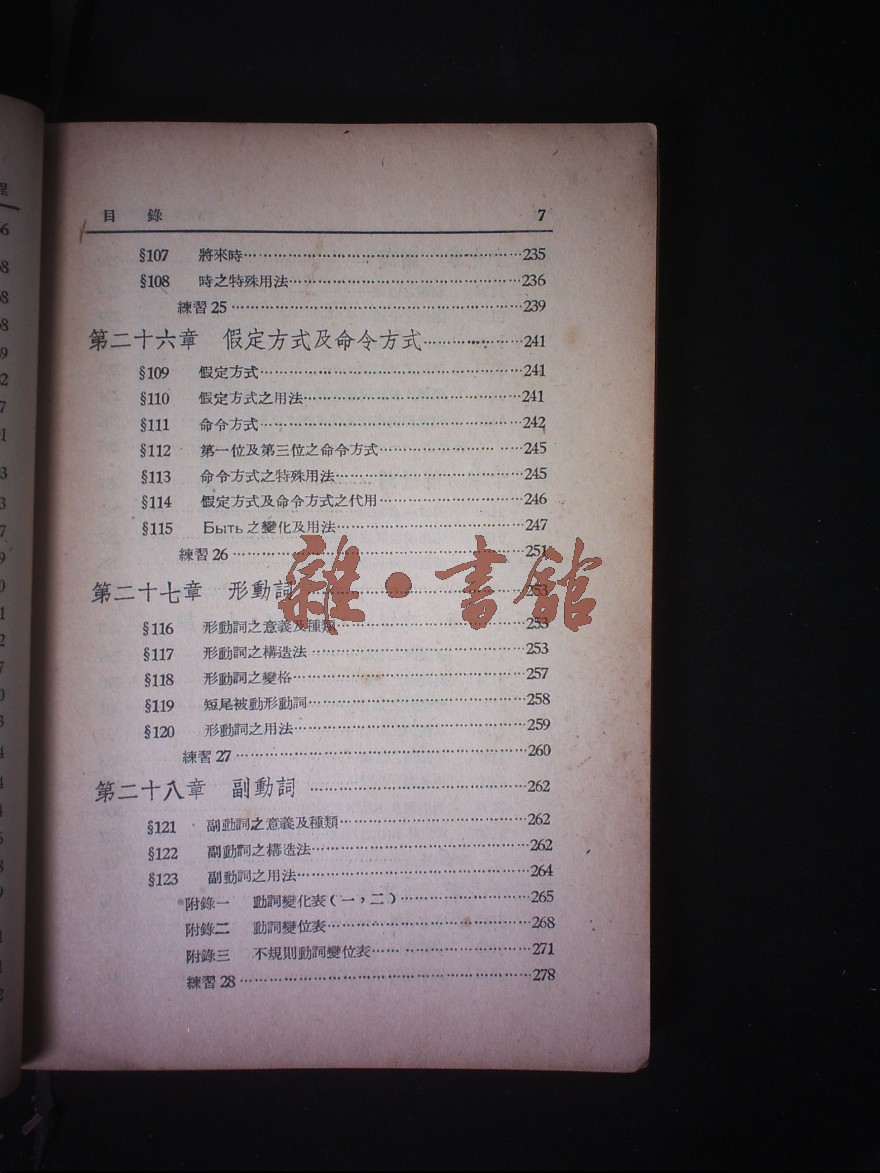 目 錄 7
§107 將來時……235
§108 時之特殊用法……236
練習 25……239
第二十六章 假定方式及命令方式……241
§109 假定方式……241
§110 假定方式之用法……241
§111 命令方式……242
§112 第一位及第三位之命令方式……245
§113 命令方式之特殊用法……245
§114 假定方式及命令方式之代用……246
§115 Быть 之變化及用法……247
練習 26……251
第二十七章 形動詞……253
雜·書館
§116 形動詞之意義及種類……253
§117 形動詞之構造法……253
§118 形動詞之變格……257
§119 短尾被動形動詞……258
§120 形動詞之用法……259
練習 27……260
第二十八章 副動詞……262
§121 副動詞之意義及種類……262
§122 副動詞之構造法……262
§123 副動詞之用法……264
附錄一 動詞變化表(一,二)……265
附錄二 動詞變位表……268
附錄三 不規則動詞變位表……271
練習 28……278